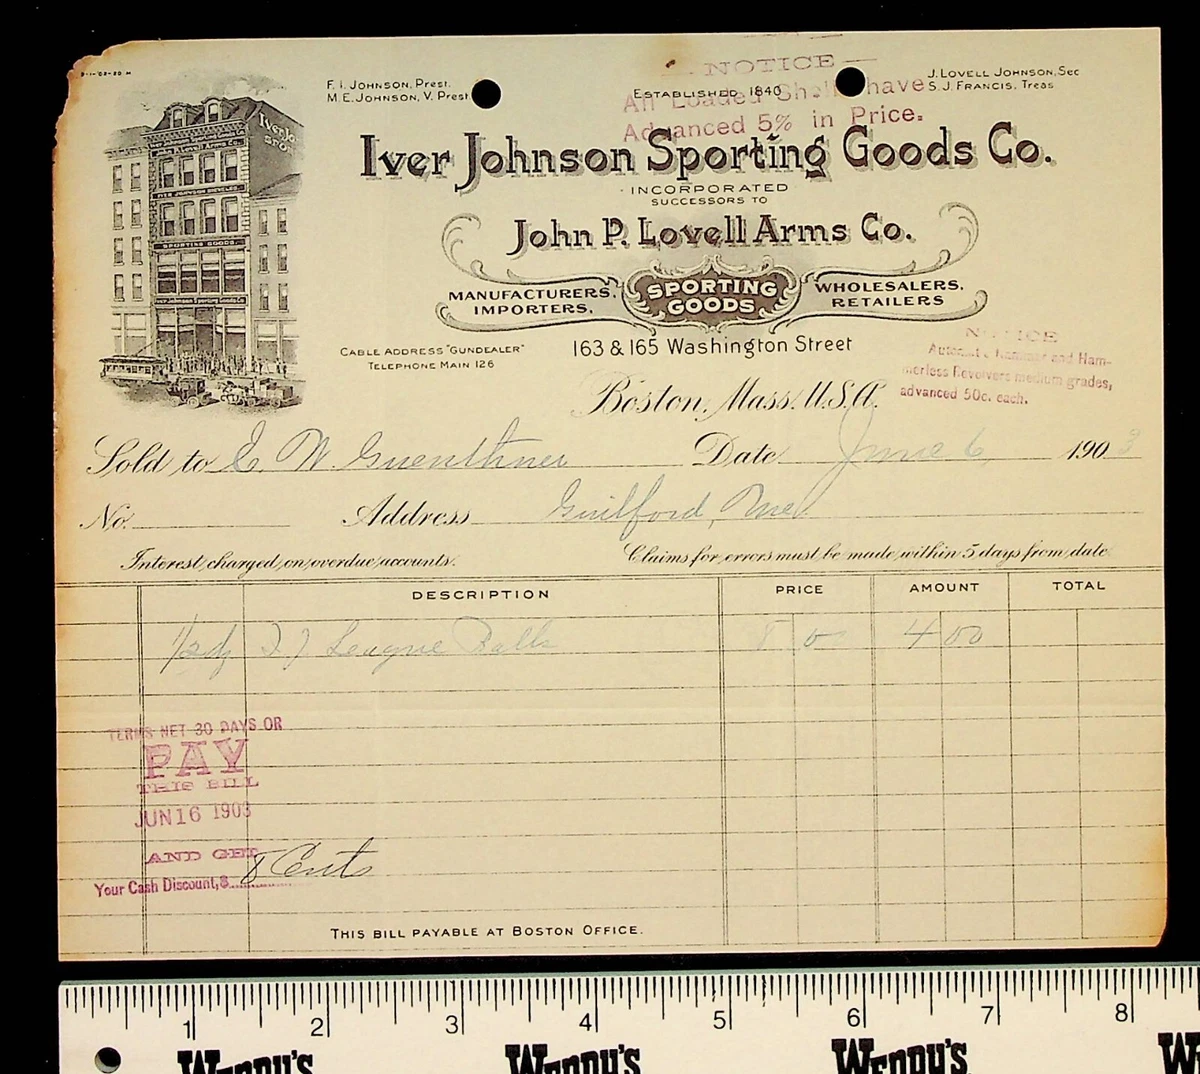 F. I. Johnson, Prest.
M. E. Johnson, V. Prest.
Established 1840
J. Lovell Johnson, Sec
S. J. Francis, Treas
NOTICE
All Loaded Shells have
Advanced 5% in Price.
Iver Johnson Sporting Goods Co.
INCORPORATED
SUCCESSORS TO
John P. Lovell Arms Co.
MANUFACTURERS,
IMPORTERS,
SPORTING
GOODS
WHOLESALERS,
RETAILERS
John P. Lovell Arms Co.
IVER JOHNSON BICYCLES
SPORTING GOODS.
Iver Johnson Sporting Goods Co.
CABLE ADDRESS "GUNDEALER"
TELEPHONE MAIN 126
163 & 165 Washington Street
NOTICE
Hammer and Ham-
merless Revolvers medium grades,
advanced 50c. each.
Boston, Mass. U.S.A.
Sold to E. W. Guenthner Date June 6 1903
No. Address Guilford, Me
Interest charged on overdue accounts. Claims for errors must be made within 5 days from date
DESCRIPTION PRICE AMOUNT TOTAL
1/2 League Balls 8 0 4 00
TERMS NET 30 DAYS OR
PAY
THIS BILL
JUN 16 1903
AND GET
Your Cash Discount, $ 8 Cents
THIS BILL PAYABLE AT BOSTON OFFICE.
1 2 3 4 5 6 7 8
WENDY'S WENDY'S WENDY'S